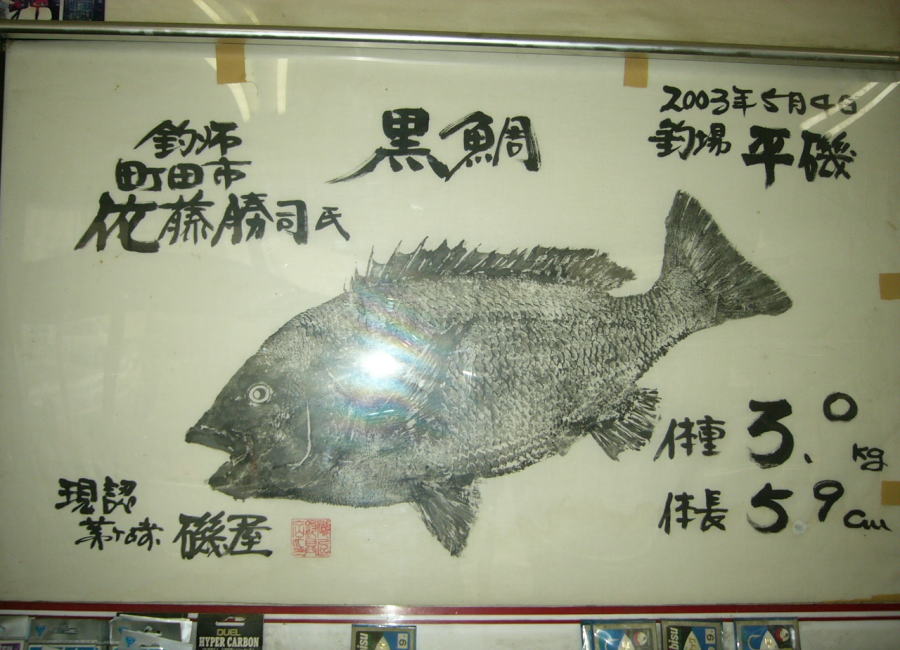 黒鯛
2003年5月4日
釣場 平磯
釣师
町田市
佐藤勝司氏
体重 3.0kg
体長 59cm
現認
茅ケ崎 磯屋
DUEL
HYPER CARBON